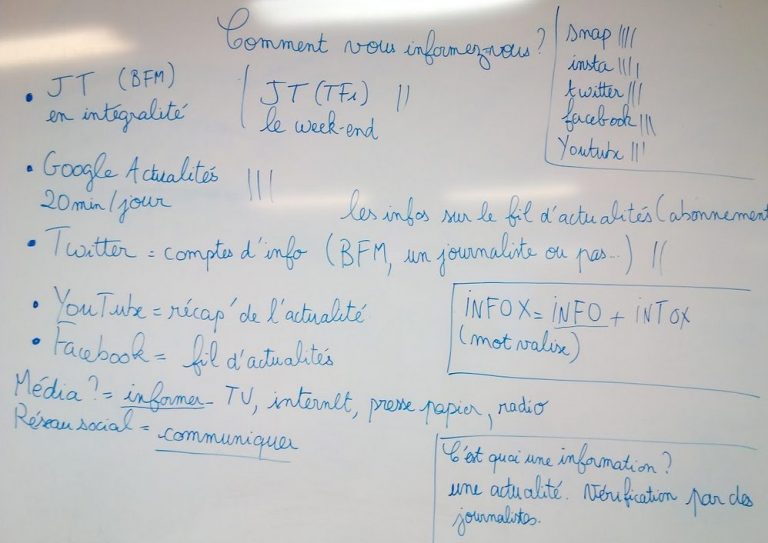 Comment vous informez-vous?
snap ||||
insta ||||
twitter |||
facebook |||
Youtube |||
• JT (BFM)
en intégralité
JT (TF1) ||
le week-end
• Google Actualités |||
20min/jour
les infos sur le fil d'actualités (abonnement
• Twitter = comptes d'info (BFM, un journaliste ou pas...) ||
• YouTube = récap' de l'actualité
• Facebook = fil d'actualités
INFOX = INFO + INTOX
(mot valise)
Média? = informer - TV, internet, presse papier, radio
Réseau social = communiquer
C'est quoi une information?
une actualité. Vérification par des
journalistes.